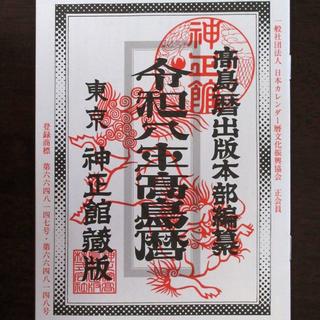 一般社団法人 日本カレンダー暦文化振興協会 正会員
神正館
高島暦出版本部編纂
令和八年高島暦
東京 神正館蔵版
登録商標 第六六四八一四七号・第六六四八一四八号